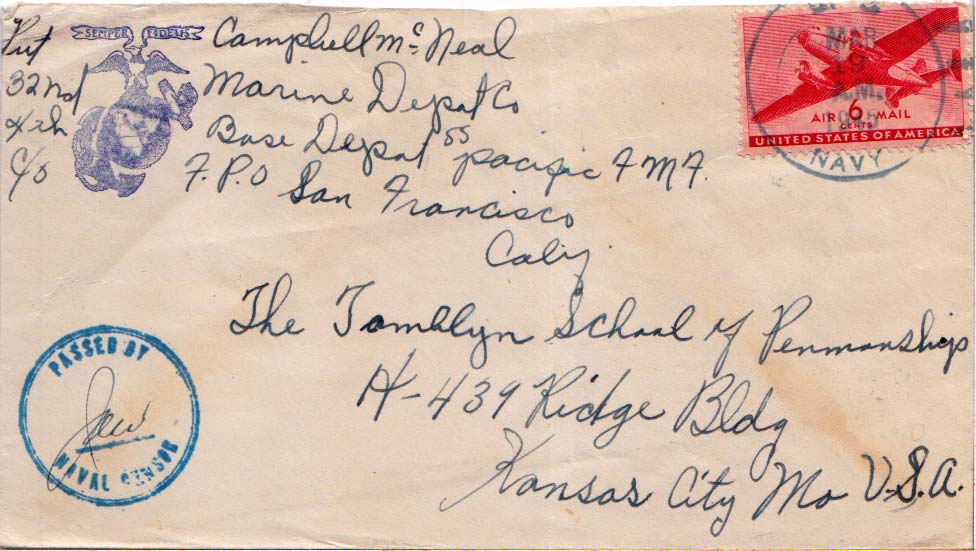 SEMPER FIDELIS
Pvt Campbell Mc Neal
32nd Marine Depot Co
4th Base Depot 55 pacific F M F.
C/o F.P.O San Francisco
Calif
MAR
19
A.M.
1945
NAVY
AIR 6 MAIL
CENTS
UNITED STATES OF AMERICA
The Tamblyn School of Penmanship
H-439 Ridge Bldg
Kansas City Mo U.S.A.
PASSED BY
NAVAL CENSOR